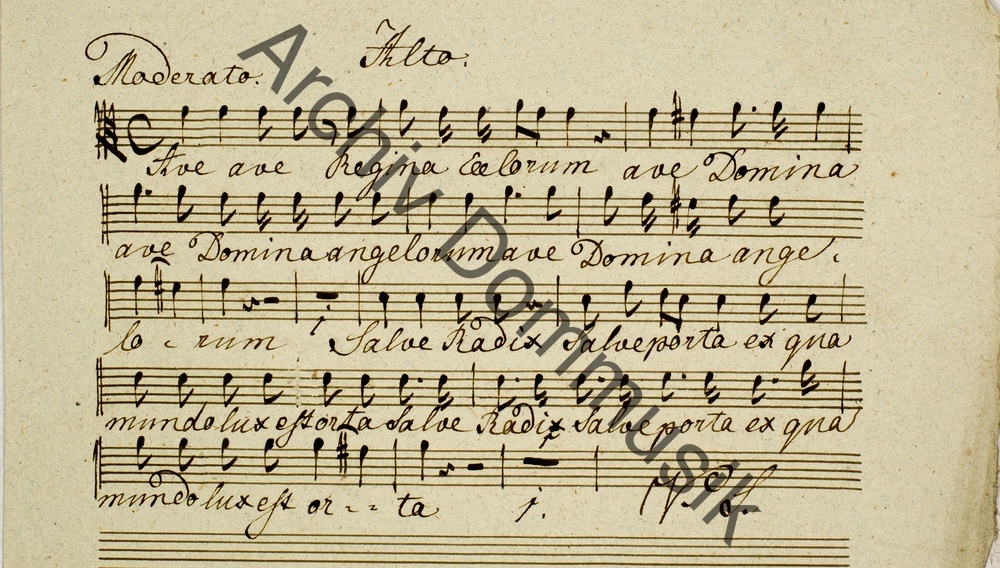 Alto.
Moderato.
Ave ave Regina Cœlorum ave Domina
ave Domina angelorum ave Domina ange
lo - rum 1. Salve Radix Salve porta ex qua
mundo lux est orta Salve Radix Salve porta ex qua
mundo lux est or - - ta 1. V. S.
Archiv Dommusik